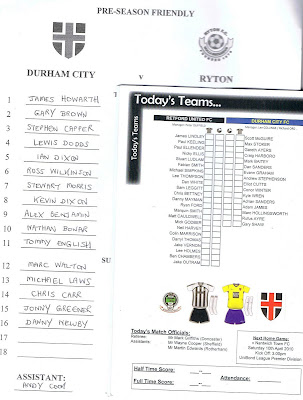 PRE-SEASON FRIENDLY
DURHAM CITY
v
RYTON
1 JAMES HOWARTH
2 GARY BROWN
3 STEPHEN CAPPER
4 LEWIS DODDS
5 IAN DIXON
6 ROSS WILKINSON
7 STEWART MORRIS
8 KEVIN DIXON
9 ALEX BENJAMIN
10 NATHAN BONAR
11 TOMMY ENGLISH
SU
12 MARC WALTON
13 MICHAEL LAWS
14 CHRIS CARR
15 JONNY GREENER
16 DANNY NEWBY
17
18
ASSISTANT:
ANDY COOK
Today's Teams...
Today's Teams...
RETFORD UNITED FC
DURHAM CITY FC
James LINDLEY
Paul KEELING
Paul ELLENDER
Ricky ELLIS
Stuart LUDLAM
Fabian SMITH
Michael SIMPKINS
Lee THOMPSON
Dan WHITE
Sam LEGGITT
Craig BETTNEY
Danny MAYMAN
Ryan FORD
Marquis SMITH
Matt CAULDWELL
Mick GODBER
Neil HARVEY
Colin MARRISON
Darryl THOMAS
Jake VERNON
Lee HOLMES
Ben CHAMBERS
Jake OUTRAM
Scott McGUIRE
Max STOKER
Gareth AYERS
Craig HARBORD
Mark BAXTER
Dan SANDERS
Evans GRAHAM
Andrew STEPHENSON
Elliot CUTTS
Conor WINTER
Kyle WREN
Adrian SANDERS
Adam JAMES
Marc HOLLINGSWORTH
Gary SHAW
Today's Match Officials:
Referee: Mr Mark Griffiths (Doncaster)
Assistants: Mr Wayne Cooper (Sheffield)
Mr Martin Edwards (Rotherham)
Next Home Game:
v Nantwich Town FC
Saturday 10th April 2010
Kick Off 3.00pm
UniBond League Premier Division
Half Time Score:
Full Time Score:
Attendance: